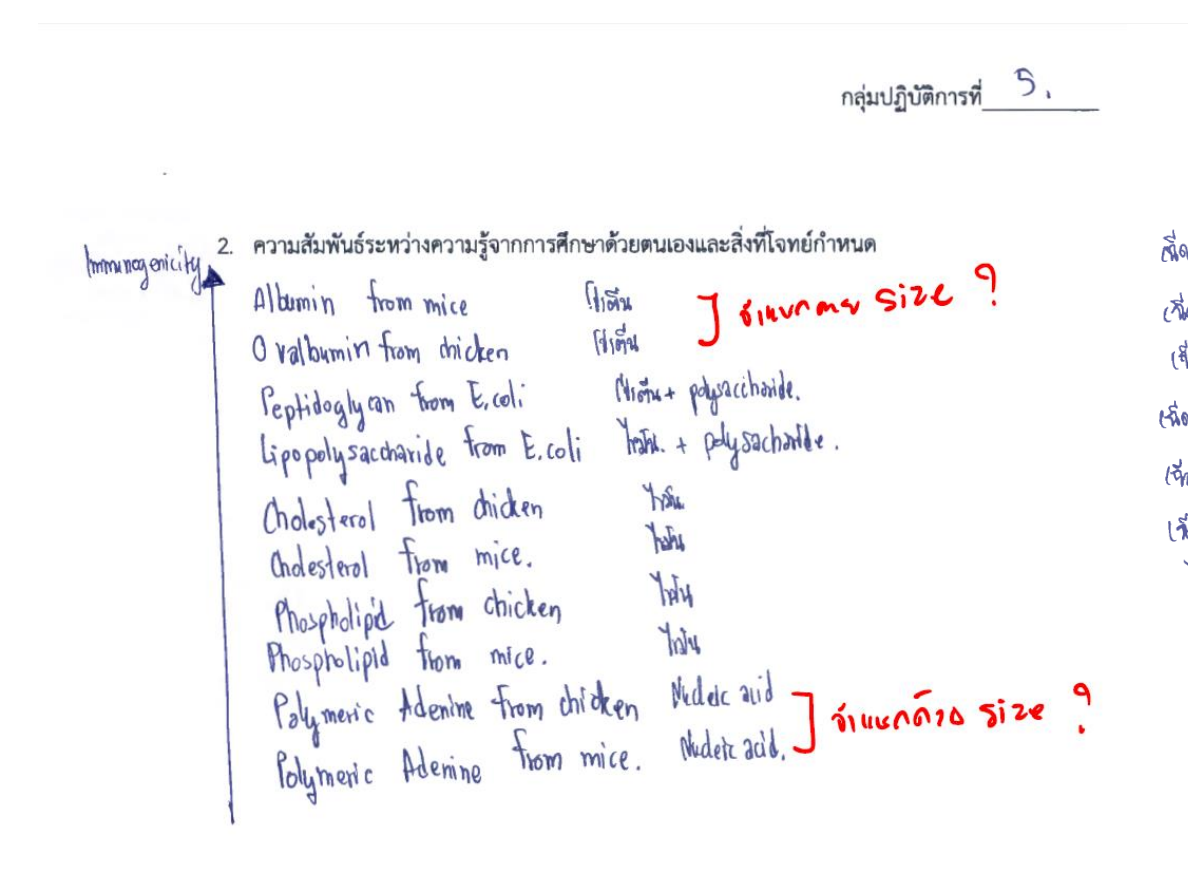 กลุ่มปฏิบัติการที่ 5.
2. ความสัมพันธ์ระหว่างความรู้จากการศึกษาด้วยตนเองและสิ่งที่โจทย์กำหนด
Immunogenicity
Albumin from mice โปรตีน
Ovalbumin from chicken โปรตีน
จำแนกด้วย size ?
Peptidoglycan from E.coli โปรตีน + polysaccharide.
Lipopolysaccharide from E.coli ไขมัน. + polysacharide.
Cholesterol from chicken ไขมัน
Cholesterol from mice. ไขมัน
Phospholipid from chicken ไขมัน
Phospholipid from mice. ไขมัน
Polymeric Adenine from chicken Nucleic acid
Polymeric Adenine from mice. Nucleic acid.
จำแนกด้วย size ?